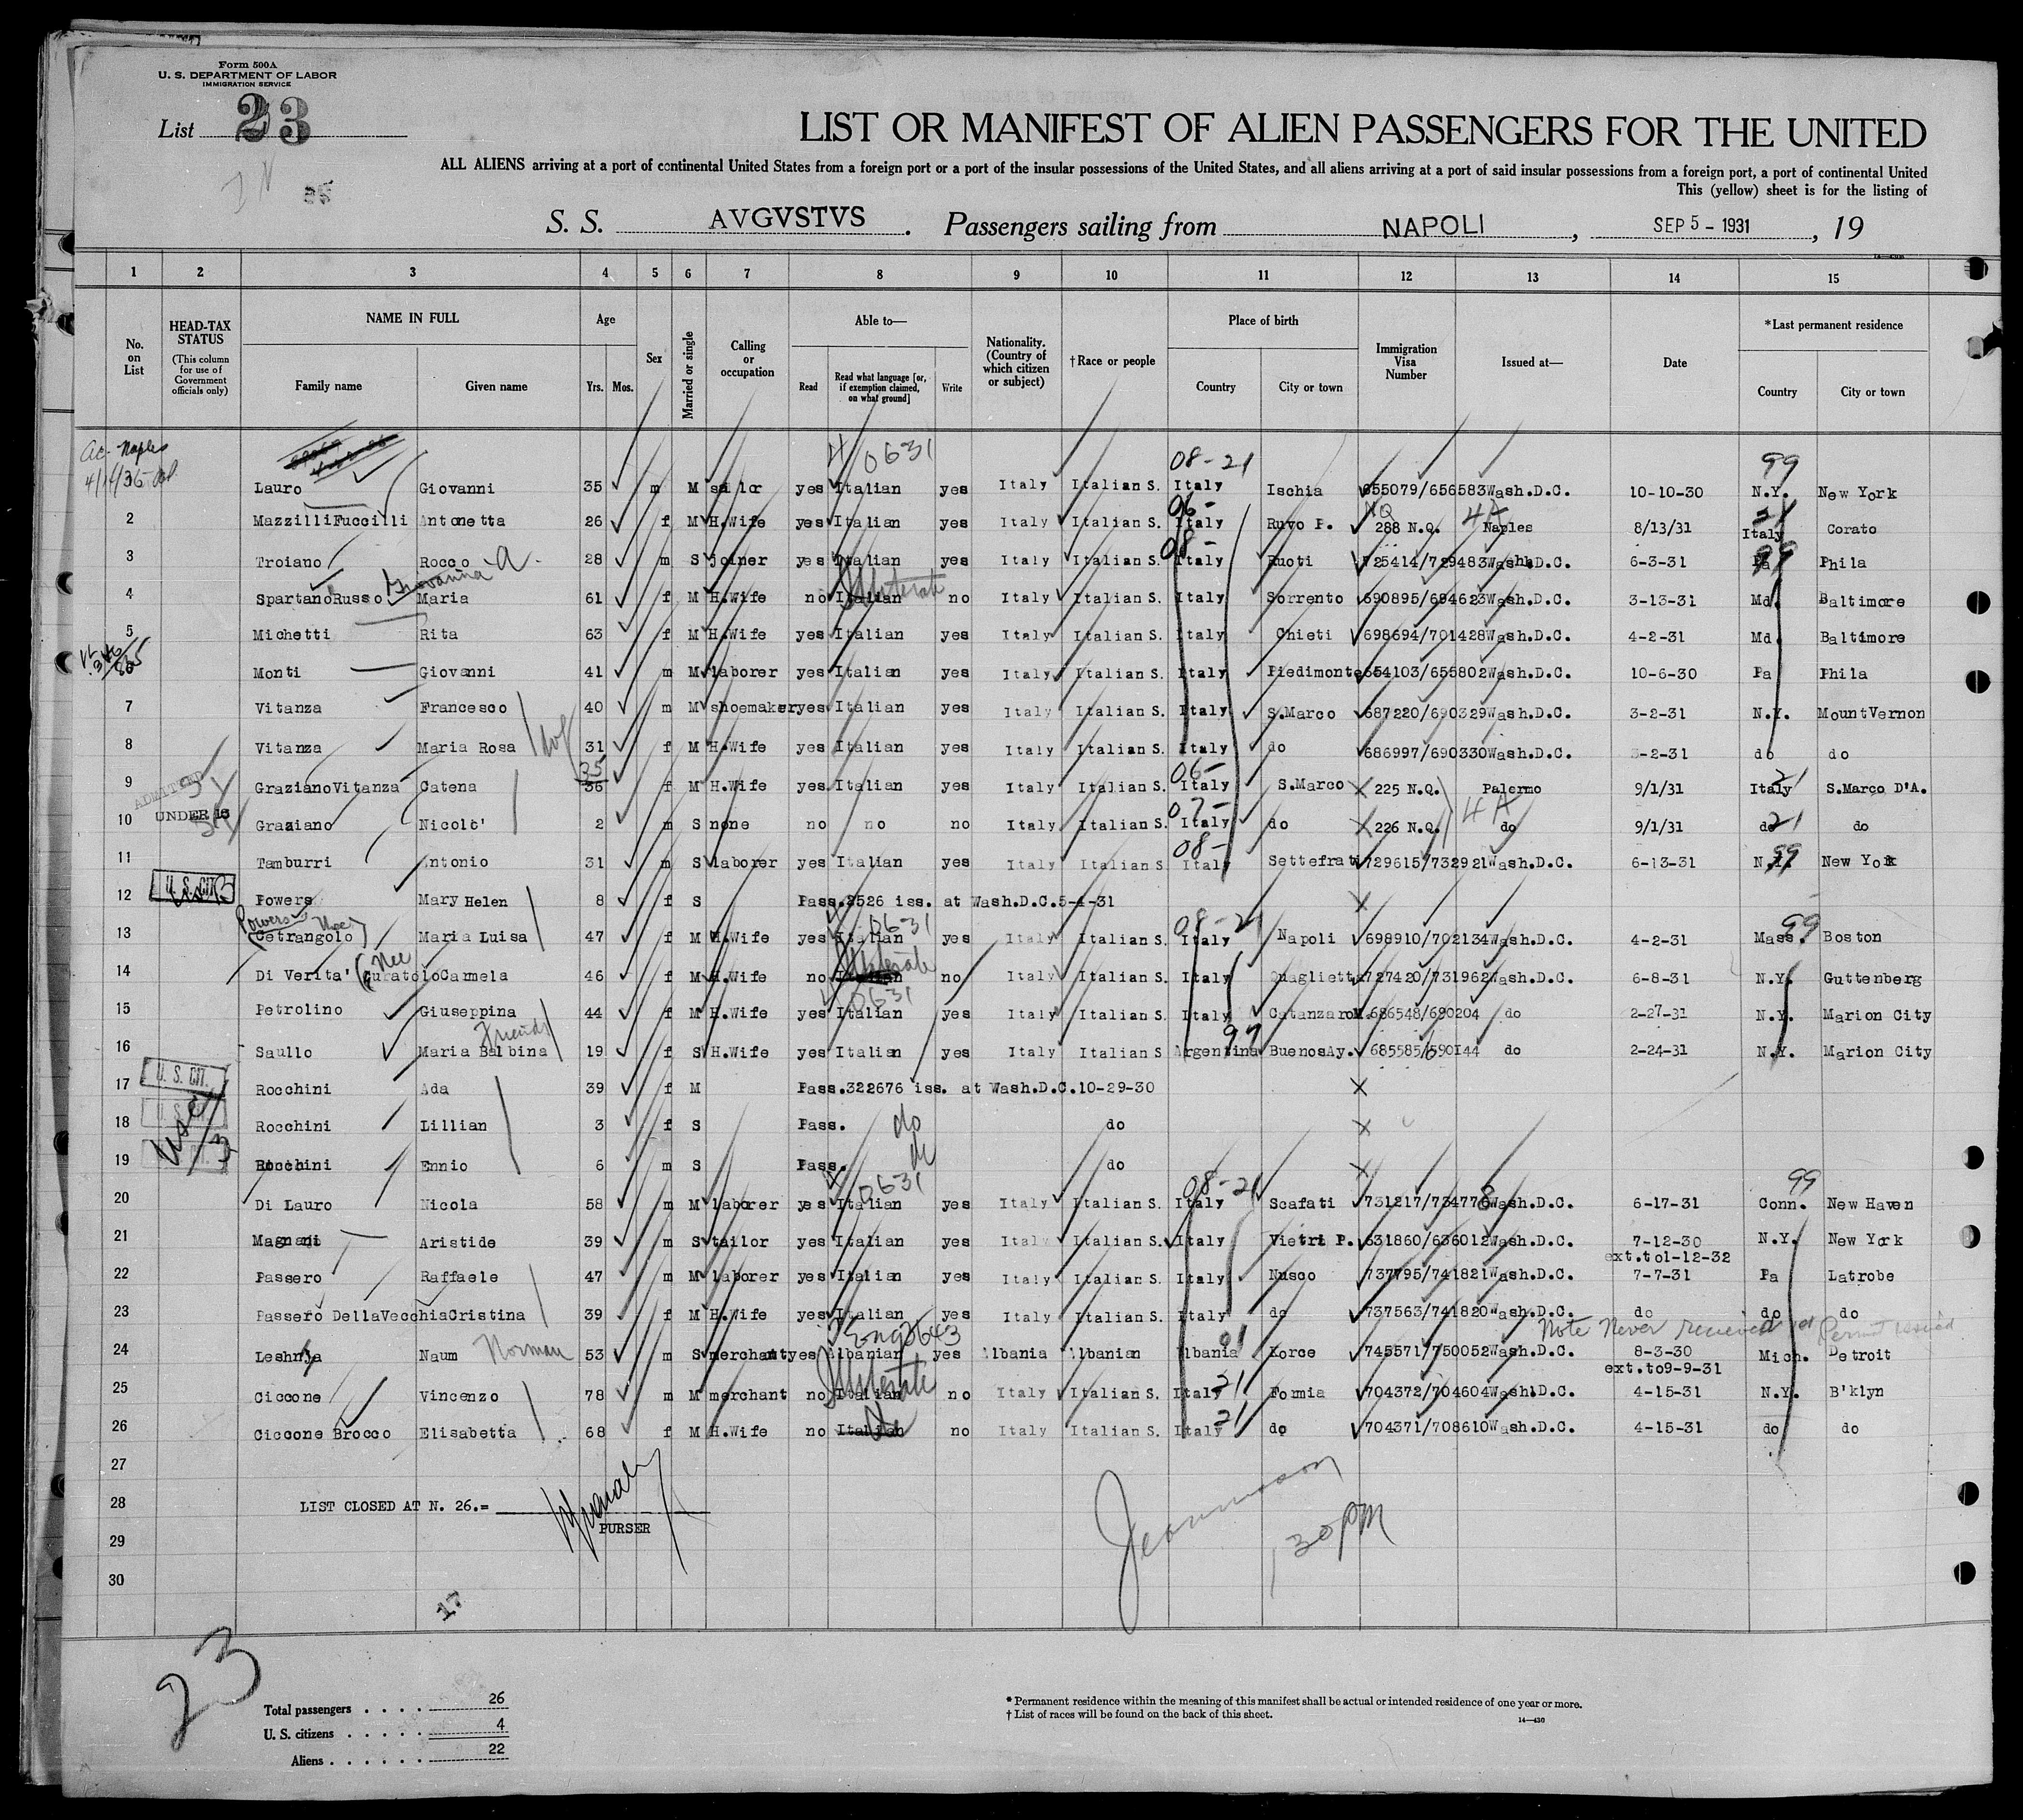 Form 500A
U. S. DEPARTMENT OF LABOR
IMMIGRATION SERVICE
List 23
LIST OR MANIFEST OF ALIEN PASSENGERS FOR THE UNITED
ALL ALIENS arriving at a port of continental United States from a foreign port or a port of the insular possessions of the United States, and all aliens arriving at a port of said insular possessions from a foreign port, a port of continental United
This (yellow) sheet is for the listing of
S. S. AVGVSTVS. Passengers sailing from NAPOLI, SEP 5 - 1931, 19
1 2 3 4 5 6 7 8 9 10 11 12 13 14 15
No. on List
HEAD-TAX STATUS (This column for use of Government officials only)
NAME IN FULL Family name Given name
Age Yrs. Mos.
Sex
Married or single
Calling or occupation
Able to— Read Read what language [or, if exemption claimed, on what ground] Write
Nationality. (Country of which citizen or subject)
†Race or people
Place of birth Country City or town
Immigration Visa Number
Issued at—
Date
*Last permanent residence Country City or town
Naples 0631 08-21 99
Lauro Giovanni 35 m M sailor yes Italian yes Italy Italian S. Italy Ischia 655079/656583 Wash.D.C. 10-10-30 N.Y. New York
2 Mazzilli Fuccilli Antonetta 26 f M H.Wife yes Italian yes Italy Italian S. Italy Ruvo P. 288 N.Q. Naples 8/13/31 Italy Corato
3 Troiano Rocco 28 m S joiner yes Italian yes Italy Italian S. Italy Ruoti 725414/729483 Wash.D.C. 6-3-31 Pa Phila
4 Spartano Russo Giovanna Maria 61 f M H.Wife no Italian Illiterate no Italy Italian S. Italy Sorrento 690895/694623 Wash.D.C. 3-13-31 Md. Baltimore
5 Michetti Rita 63 f M H.Wife yes Italian yes Italy Italian S. Italy Chieti 698694/701428 Wash.D.C. 4-2-31 Md. Baltimore
Monti Giovanni 41 m M laborer yes Italian yes Italy Italian S. Italy Piedimonte 654103/655802 Wash.D.C. 10-6-30 Pa Phila
7 Vitanza Francesco 40 m M shoemaker yes Italian yes Italy Italian S. Italy S.Marco 687220/690329 Wash.D.C. 3-2-31 N.Y. MountVernon
8 Vitanza Maria Rosa 31 f M H.Wife yes Italian yes Italy Italian S. Italy do 686997/690330 Wash.D.C. 3-2-31 do do
9 Graziano Vitanza Catena 35 36 f M H.Wife yes Italian yes Italy Italian S. Italy S.Marco 225 N.Q. Palermo 9/1/31 Italy S.Marco D'A.
ADMITTED UNDER 16
10 Graziano Nicolo' 2 m S none no no no Italy Italian S. Italy do 226 N.Q. do 9/1/31 do do
11 Tamburri Antonio 31 m S laborer yes Italian yes Italy Italian S. Italy Settefrati 729615/732921 Wash.D.C. 6-13-31 N.Y. New York
12 U. S. CIT. Powers Mary Helen 8 f S Pass.2526 iss. at Wash.D.C.5-4-31
Powers Nee 0631 08-21 99
13 Cetrangolo Maria Luisa 47 f M H.Wife yes Italian yes Italy Italian S. Italy Napoli 698910/702134 Wash.D.C. 4-2-31 Mass. Boston
14 Di Verita' (Nee Curatolo Carmela 46 f M H.Wife no Italian Illiterate no Italy Italian S. Italy Quaglietta 727420/731962 Wash.D.C. 6-8-31 N.Y. Guttenberg
15 Petrolino Giuseppina 44 f M H.Wife yes Italian yes Italy Italian S. Italy Catanzaro M. 686548/690204 do 2-27-31 N.Y. Marion City
Friend
16 Saullo Maria Balbina 19 f S H.Wife yes Italian yes Italy Italian S Argentina BuenosAy. 685585/690144 do 2-24-31 N.Y. Marion City
17 U. S. CIT. Rocchini Ada 39 f M Pass.322676 iss. at Wash.D.C.10-29-30
18 Rocchini Lillian 3 f S Pass. do do
19 Rocchini Ennio 6 m S Pass. do do
0631 08-21 99
20 Di Lauro Nicola 58 m M laborer yes Italian yes Italy Italian S. Italy Scafati 731217/734778 Wash.D.C. 6-17-31 Conn. New Haven
21 Magnani Aristide 39 m S tailor yes Italian yes Italy Italian S. Italy Vietri P. 631860/636012 Wash.D.C. 7-12-30 ext.to1-12-32 N.Y. New York
22 Passero Raffaele 47 m M laborer yes Italian yes Italy Italian S. Italy Nusco 737795/741821 Wash.D.C. 7-7-31 Pa Latrobe
23 Passero DellaVecchia Cristina 39 f M H.Wife yes Italian yes Italy Italian S. Italy do 737563/741820 Wash.D.C. do do do
Note Never received Permit issued
24 Leshnja Naum Norman 53 m S merchant yes Albanian yes Albania Albanian Albania Korce 745571/750052 Wash.D.C. 8-3-30 ext.to9-9-31 Mich. Detroit
25 Ciccone Vincenzo 78 m M merchant no Italian Illiterate no Italy Italian S. Italy Formia 704372/704604 Wash.D.C. 4-15-31 N.Y. B'klyn
26 Ciccone Brocco Elisabetta 68 f M H.Wife no Italian do no Italy Italian S. Italy do 704371/708610 Wash.D.C. 4-15-31 do do
27
28 LIST CLOSED AT N. 26.=
PURSER
29
30
1 30 PM
17
23
Total passengers 26
U. S. citizens 4
Aliens 22
* Permanent residence within the meaning of this manifest shall be actual or intended residence of one year or more.
† List of races will be found on the back of this sheet.
14—430